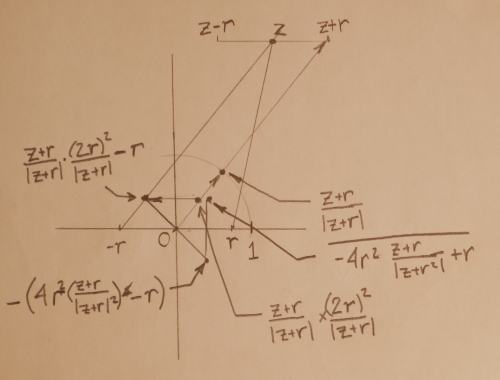 z-r z z+r
z+r/|z+r| · (2r)²/|z+r| - r
z+r/|z+r|
-r 0 r 1
-4r² z+r/|z+r²| + r
-(4r²(z+r/|z+r|²) - r)
z+r/|z+r| × (2r)²/|z+r|